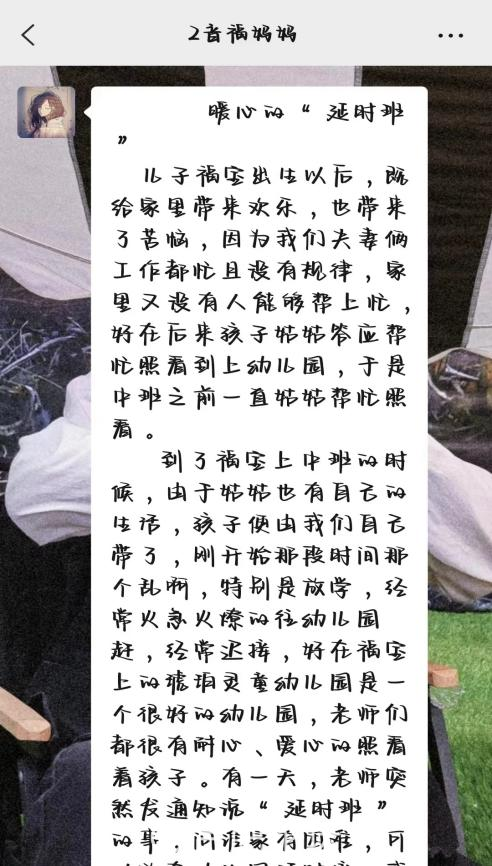 2音福妈妈
暖心的“ 延时班
”
儿子福宝出生以后，既
给家里带来欢乐，也带来
了苦恼，因为我们夫妻俩
工作都忙且没有规律，家
里又没有人能够帮上忙，
好在后来孩子姑姑答应帮
忙照看到上幼儿园，于是
中班之前一直姑姑帮忙照
看。
到了福宝上中班的时
候，由于姑姑也有自己的
生活，孩子便由我们自己
带了，刚开始那段时间那
个乱啊，特别是放学，经
常火急火燎的往幼儿园
赶，经常迟接，好在福宝
上的琥珀灵童幼儿园是一
个很好的幼儿园，老师们
都很有耐心、爱心的照看
着孩子。有一天，老师突
然发通知说“ 延时班 ”
的事，问谁家有困难，可